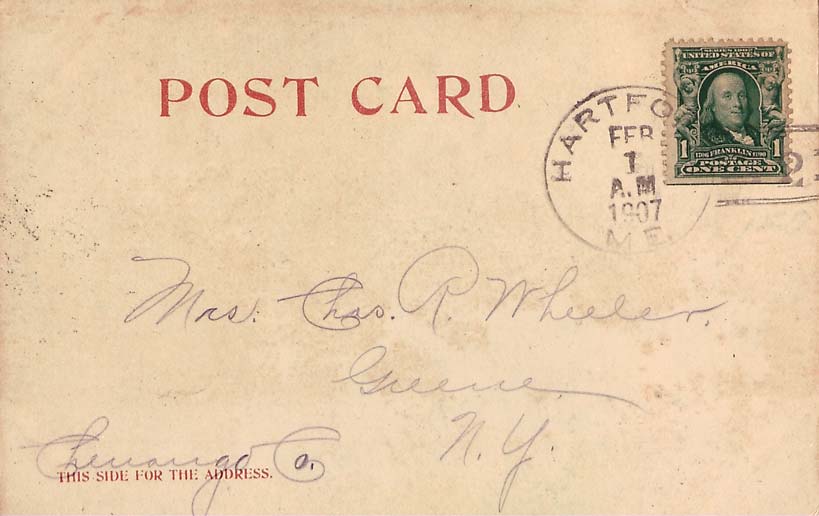 POST CARD
SERIES 1902
UNITED STATES OF
AMERICA
1 1706 FRANKLIN 1790 1
POSTAGE
ONE CENT
HARTFO
FEB
1
A.M
1907
ME.
2
Mrs. Chas. R. Wheeler.
Greene
N.Y.
Chenango Co.
THIS SIDE FOR THE ADDRESS.